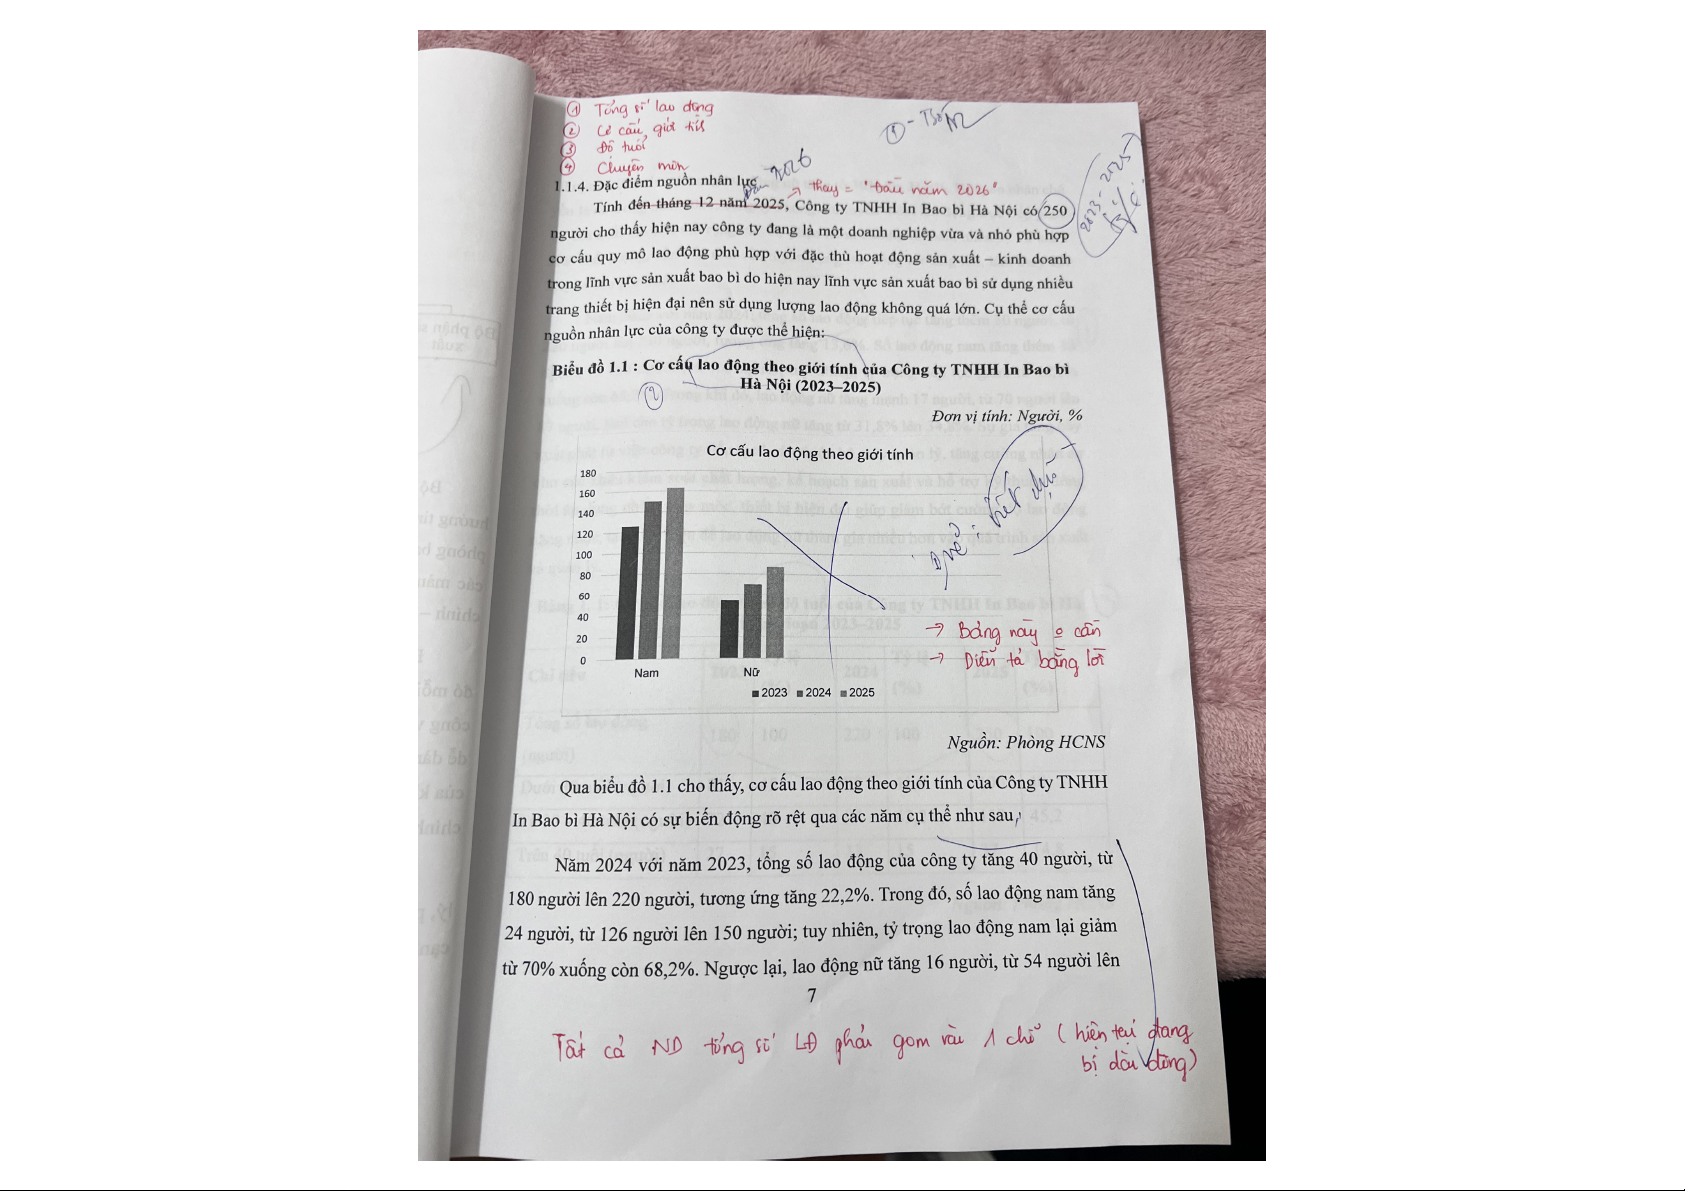 ① Tổng số lao động
② Cơ cấu, giới tính
③ Độ tuổi
④ Chuyên môn
① -
2023 - 2025
năm 2026
→ thay = "Đầu năm 2026"
1.1.4. Đặc điểm nguồn nhân lực
Tính đến tháng 12 năm 2025, Công ty TNHH In Bao bì Hà Nội có 250
người cho thấy hiện nay công ty đang là một doanh nghiệp vừa và nhỏ phù hợp
cơ cấu quy mô lao động phù hợp với đặc thù hoạt động sản xuất – kinh doanh
trong lĩnh vực sản xuất bao bì do hiện nay lĩnh vực sản xuất bao bì sử dụng nhiều
trang thiết bị hiện đại nên sử dụng lượng lao động không quá lớn. Cụ thể cơ cấu
nguồn nhân lực của công ty được thể hiện:
Biểu đồ 1.1 : Cơ cấu lao động theo giới tính của Công ty TNHH In Bao bì
Hà Nội (2023–2025)
②
Đơn vị tính: Người, %
Cơ cấu lao động theo giới tính
180
160
140
120
100
80
60
40
20
0
Nam Nữ
2023 2024 2025
→ Bảng này o cần
→ Diễn tả bằng lời
Nguồn: Phòng HCNS
Qua biểu đồ 1.1 cho thấy, cơ cấu lao động theo giới tính của Công ty TNHH
In Bao bì Hà Nội có sự biến động rõ rệt qua các năm cụ thể như sau,
Năm 2024 với năm 2023, tổng số lao động của công ty tăng 40 người, từ
180 người lên 220 người, tương ứng tăng 22,2%. Trong đó, số lao động nam tăng
24 người, từ 126 người lên 150 người; tuy nhiên, tỷ trọng lao động nam lại giảm
từ 70% xuống còn 68,2%. Ngược lại, lao động nữ tăng 16 người, từ 54 người lên
7
Tất cả ND tổng số LĐ phải gom vài 1 chỗ (hiện tại đang
bị dài dòng)